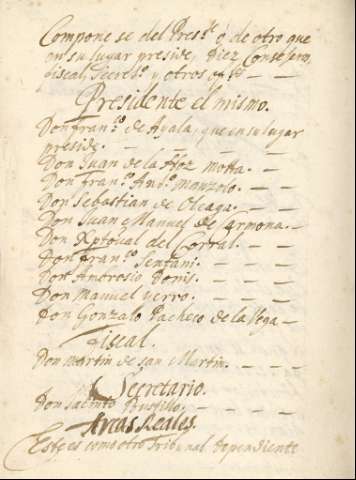 Compone se del Pres.te ó de otro que
en su lugar preside, Diez Consejeros,
fiscal, Secret.o y otros
Presidente el mismo.
Don Fran.co de Ayala, que en su lugar
preside. — — — —
Don Juan de la Hoz Motta. — —
Don Fran.co Ant.o Manzolo. — —
Don Sebastian de Oleaga. — —
Don Juan Manuel de Carmona. —
Don Xptoual del Corral. — —
Don Fran.co Sentani. — — —
Don Ambrosio Donis. — — —
Don Manuel yerro. — — —
Don Gonzalo Pacheco de la Vega —
Fiscal.
Don Martin de san Martin. — —
Secretario.
Don Jacinto Bustillo. — — —
Arcas Reales.
Este es como otro Tribunal dependiente